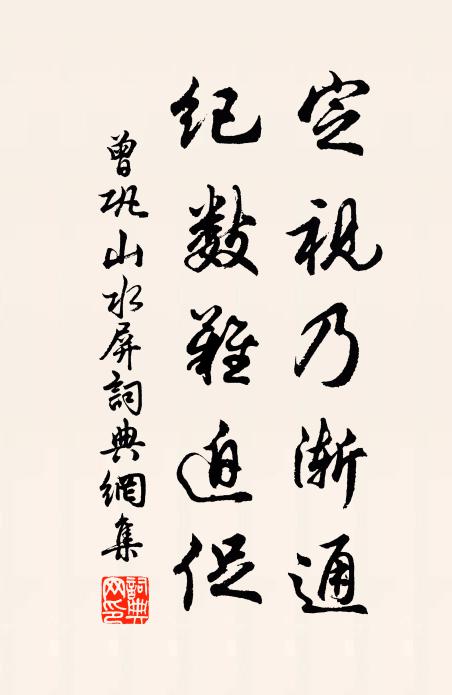 定視乃漸通
紀數難迫促
曾鞏山水屏詞典網集
詞典網印